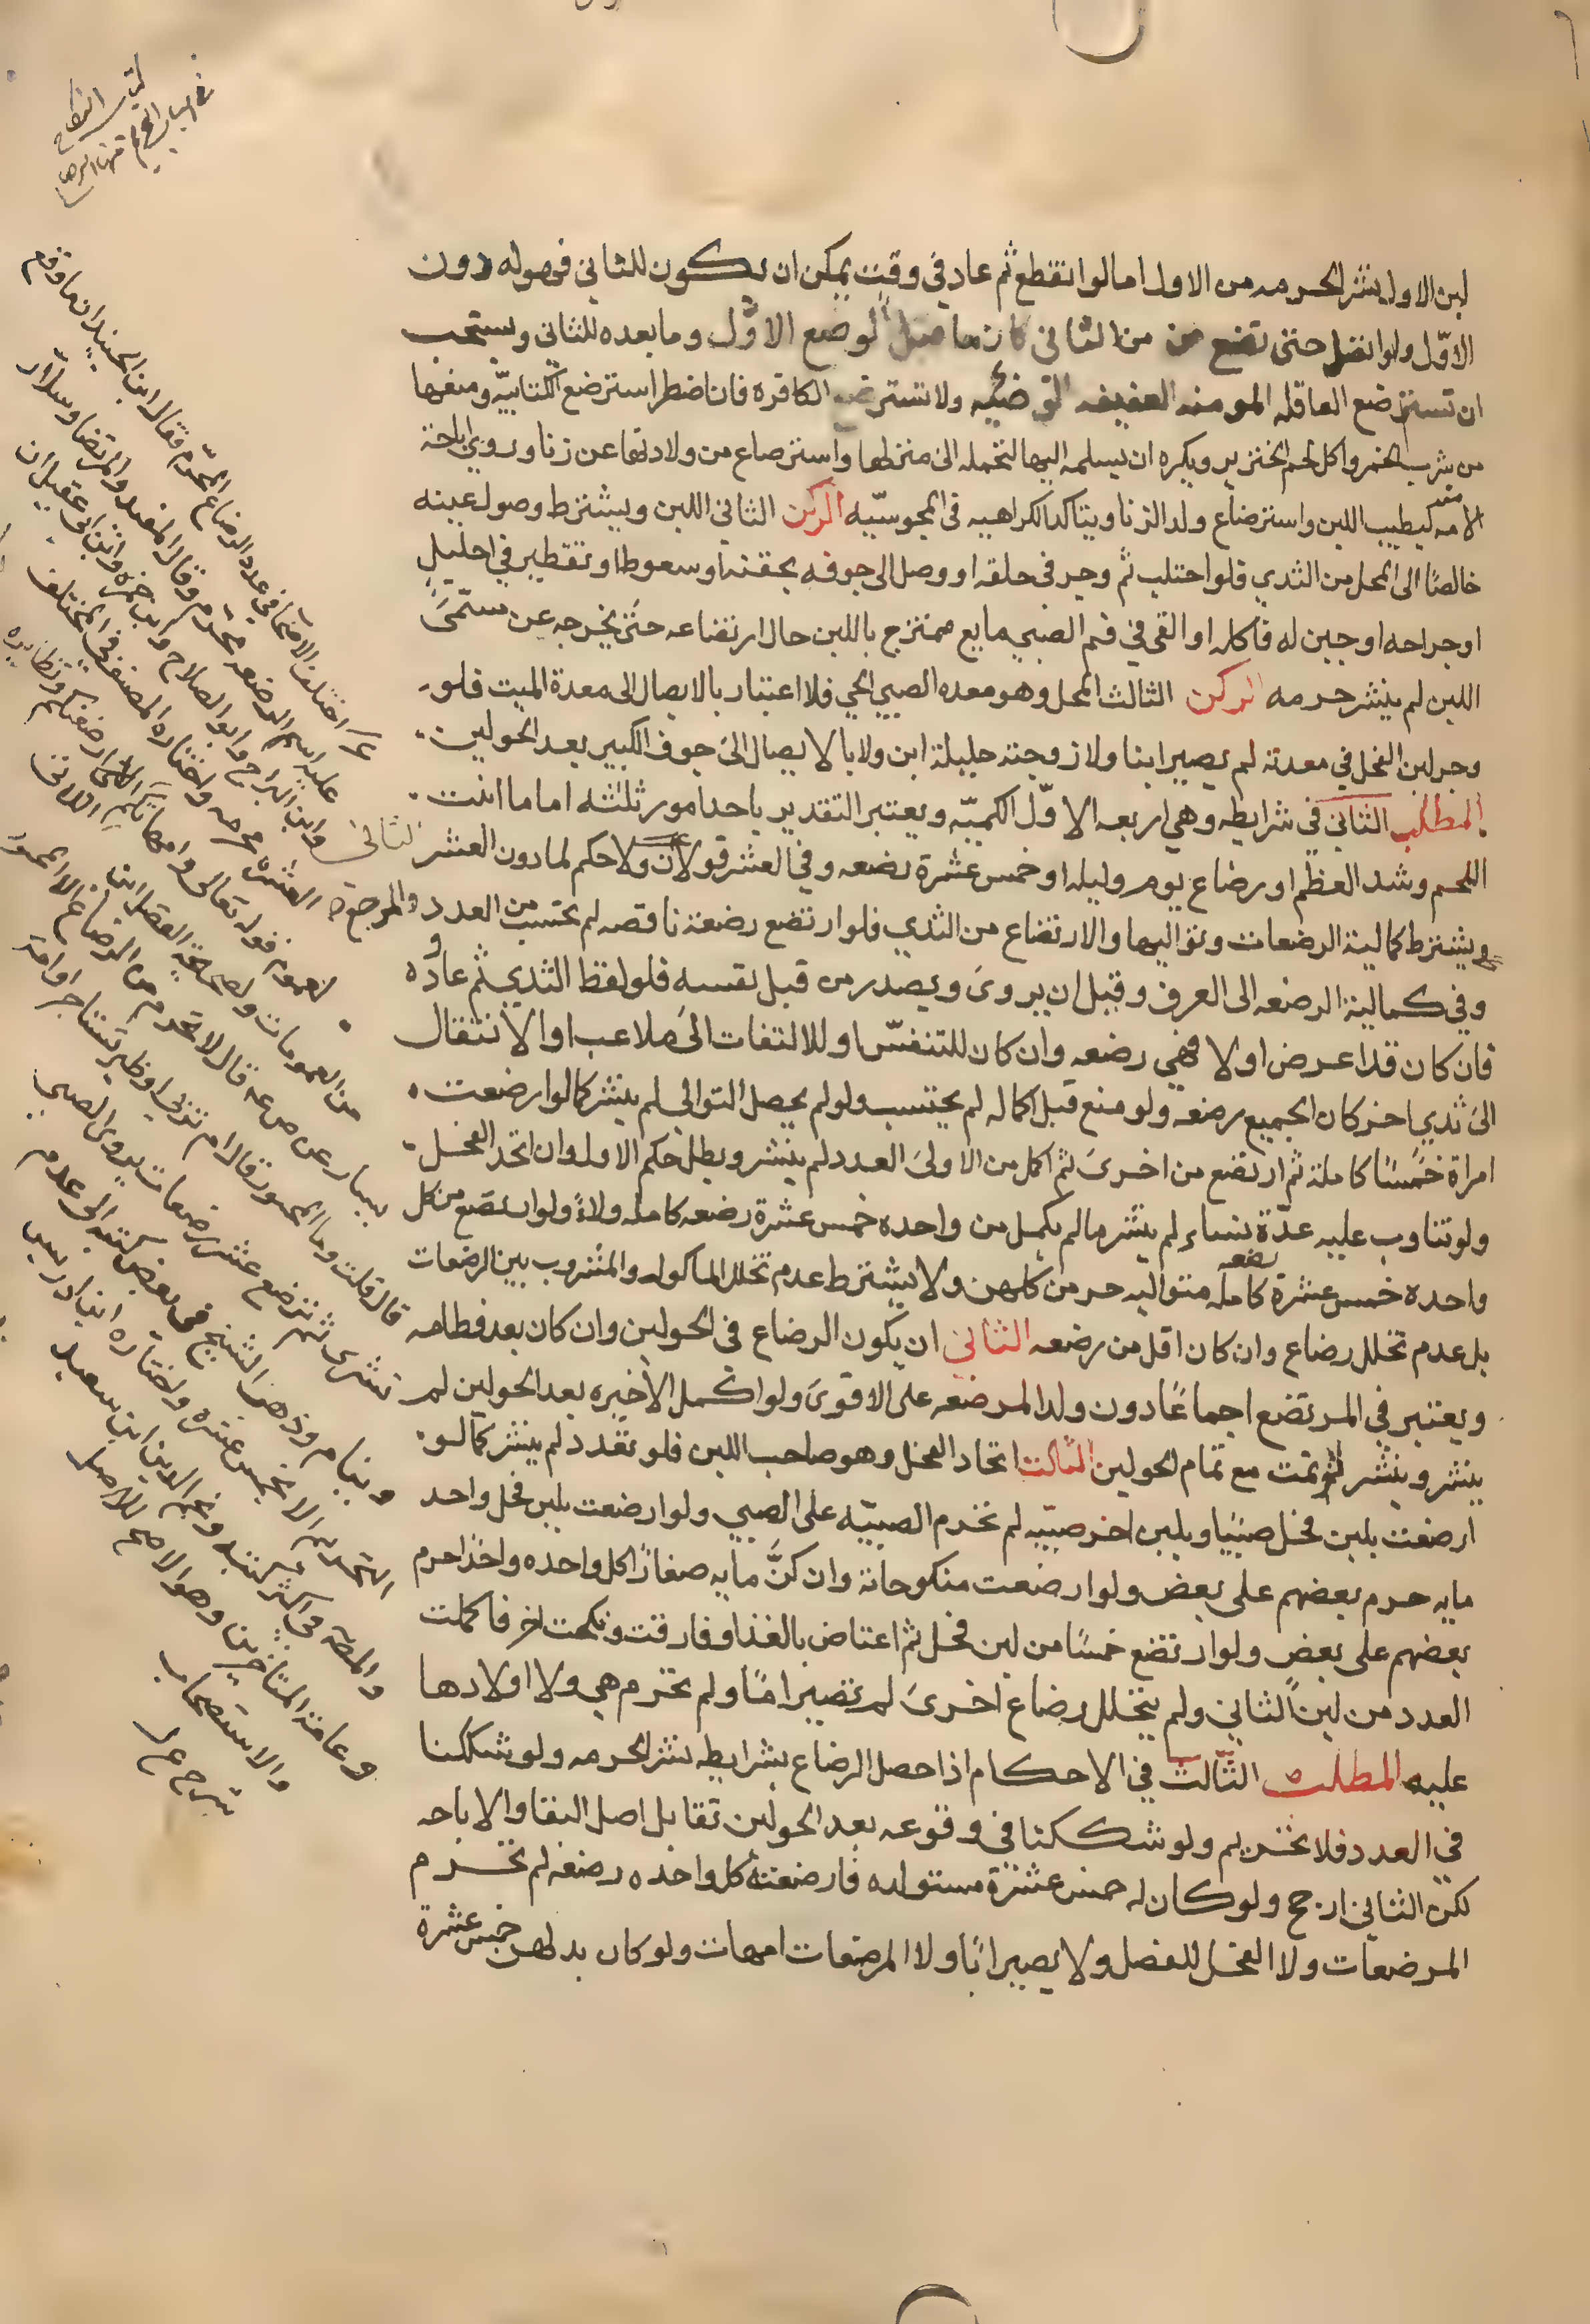 لبن الاول ينشر الحرمه من الاول اما لو انقطع ثم عاد في وقت يمكن ان يكون للثاني فهو له دون
الاوّل ولو اتصل حتى تضع من الثاني كان ما قبل الوضع الاوّل وما بعده للثاني ويستحب
ان تسترضع العاقله المومنه العفيفه الوضيئه ولا تسترضع الكافره فان اضطر استرضع الكتابيّه ومنعها
من شرب الخمر واكل لحم الخنزير ويكره ان يسلمه اليها لتحمله الى منزلها واسترضاع من ولادتها عن زنا وروي اباحة
الامه منه ليطيب اللبن واسترضاع ولد الزنا ويتاكد الكراهيه في المجوسيّه الركن الثاني اللبن ويشترط وصول عينه
خالصًا الى المحل من الثدي فلو احتلب ثم وجر في حلقه او وصل الى جوفه بحقنه او سعوط او تقطير في احليل
او جراحه او جبن له فاكله او القى في فم الصبي مايع ممتزج باللبن حال ارتضاعه حتى يخرجه عن مسمّى
اللبن لم ينشر حرمه الركن الثالث المحل وهو معده الصبي الحي فلا اعتبار بالايصال الى معدة الميت فلو
وجر لبن الفحل في معدته لم يصير ابنا ولا زوجته حليلة ابن ولا بالايصال الى جوف الكبير بعد الحولين
المطلب الثاني في شرايطه وهي اربعه الاوّل الكميّه ويعتبر التقدير باحد امور ثلثه اما ما انبت
اللحم وشد العظم او رضاع يوم وليله او خمس عشرة رضعه وفي العشر قولان ولا حكم لما دون العشر
ويشترط كمالية الرضعات وتواليها والارتضاع من الثدي فلو ارتضع رضعة ناقصه لم يحتسب من العدد والمرجع
وفي كمالية الرضعه الى العرف وقيل ان يروى ويصدر من قبل نفسه فلو لفظ الثدي ثم عاوده
فان كان قد اعرض اولا فهي رضعه وان كان للتنفّس او للالتفات الى ملاعب او الانتقال
الى ثدي اخر كان الجميع رضعة ولو منع قبل اكماله لم يحتسب ولو لم يحصل التوالي لم ينشر كما لو ارضعت
امراة خمسًا كاملة ثم ارتضع من اخرى ثم اكمل من الاولى العدد لم ينشر وبطل حكم الاول وان اتحد الفحل
ولو تناوب عليه عدّة نساء لم ينشر ما لم يكمل من واحده خمس عشرة رضعه كامله ولاءً ولو ارتضع من كل
واحده خمس عشرة رضعه كامله متواليه حرمن كلهن ولا يشترط عدم تخلل الماكول والمشروب بين الرضعات
بل عدم تخلل رضاع وان كان اقل من رضعه الثاني ان يكون الرضاع في الحولين وان كان بعد فطامه
ويعتبر في المرتضع اجماعًا دون ولد المرضعه على الاقوى ولو اكمل الاخيره بعد الحولين لم
ينشر وينشر لو تمت مع تمام الحولين الثالث اتحاد الفحل وهو صاحب اللبن فلو تعدد لم ينشر كما لو
ارضعت بلبن فحل صبيًا وبلبن اخر صبيّه لم تحرم الصبيّه على الصبي ولو ارضعت بلبن فحل واحد
مايه حرم بعضهم على بعض ولو ارضعت منكوحاته وان كنَّ مايه صغارًا كل واحده واحدًا حرم
بعضهم على بعض ولو ارتضع خمسًا من لبن فحل ثم اعتاض بالغذا وفارقت ونكحت اخر فاكملت
العدد من لبن الثاني ولم يتخلل رضاع اخرى لم تصير امًا ولم تحرم هي ولا اولادها
عليه المطلب الثالث في الاحكام اذا حصل الرضاع بشرايطه نشر الحرمه ولو شككنا
في العدد فلا تحريم ولو شككنا في وقوعه بعد الحولين تقابل اصل البقا والاباحه
لكن الثاني ارجح ولو كان له خمس عشرة مستولده فارضعته كل واحده رضعه لم تحرم
المرضعات ولا الفحل للفصل ولا يصير ابًا ولا المرضعات امهات ولو كان بدلهن خمس عشرة
كتاب النكاح
اختلف الاصحاب في عدد الرضاع المحرّم فقال ابن الجنيد ان ما وقع
عليه اسم الرضعه محرّم وقال المفيد والمرتضا وسلار
وابن البراج وابو الصلاح وابن حمزه وابن ابي عقيل ان
العشره محرمه واختاره المصنف في المختلف
لعموم قوله تعالى وامهاتكم اللاتي ارضعنكم
من العمومات ولصحيحة الفضل ابن
يسار عن قال لا يحرم من الرضاع الا المجبور
قال قلت وما المجبور قال ام تربي او ظير تستاجر او امة
تشترى ثم ترضع عشر رضعات يروى الصبي
وينام وذهب الشيخ في بعض كتبه الى عدم
التحريم الا بخمس عشره واختاره ابن ادريس
والمصنّف في اكثر كتبه ونجم الدين ابن سعيد
وعامة المتاخرين وهو الاصح للاصل
والاستصحاب